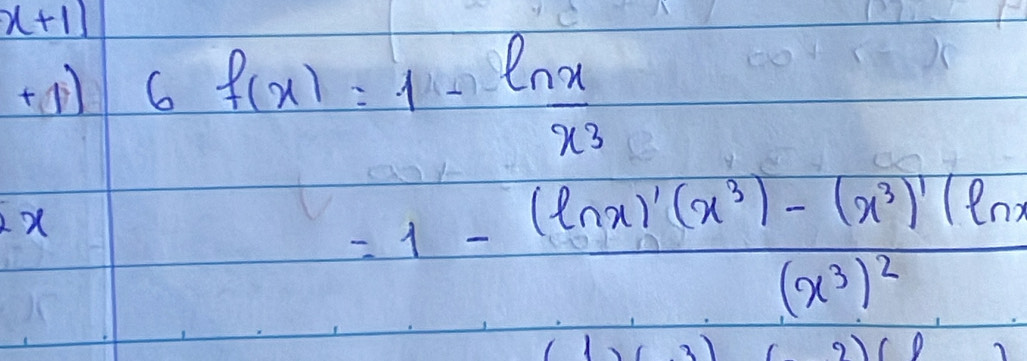 x+1)
+1) 6 f(x) = 1 - lnx / x³
2x = 1 - (lnx)'(x³) - (x³)'(lnx / (x³)²